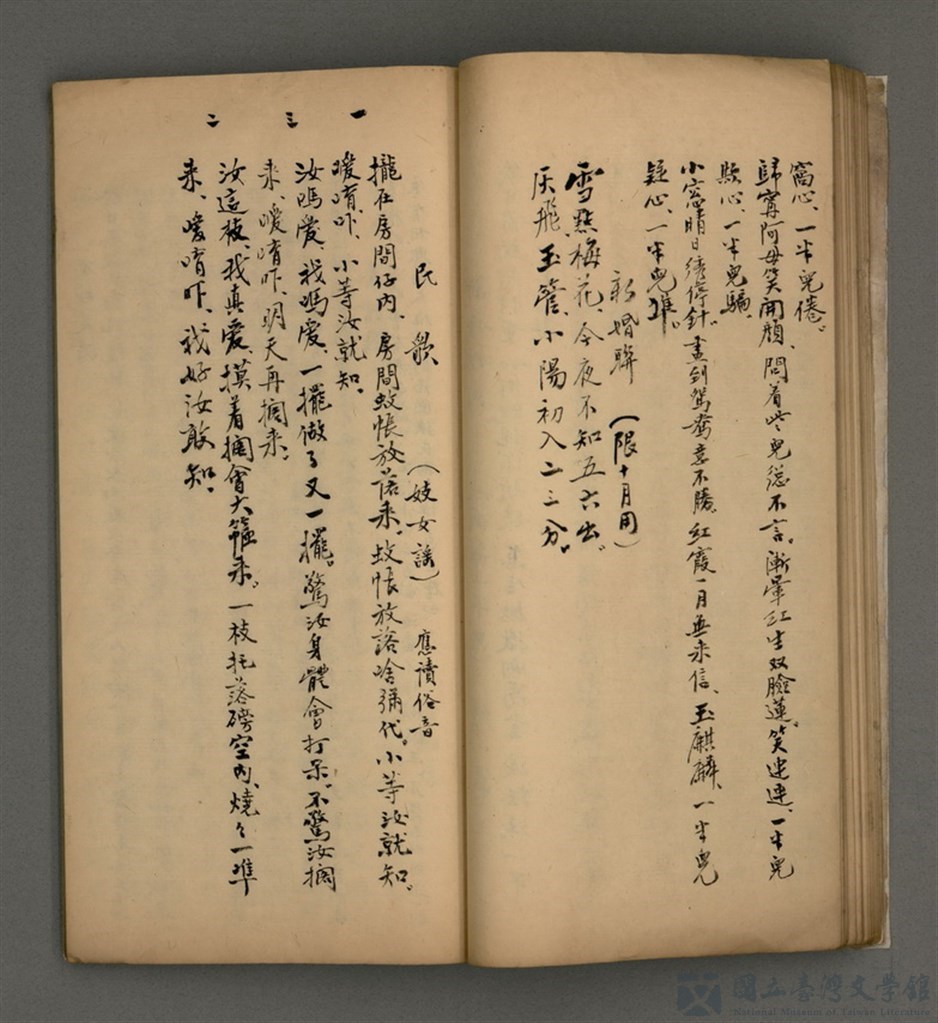 窩心、一半兒倦。
歸甯阿母笑開顏、問着些兒總不言。漸暈紅生双臉蓮。笑連連、一半兒
欺心、一半兒騙。
小窓晴日綉停針。畫到鴛鴦意不勝。紅霞一月無來信、玉麒麟、一半兒
疑心、一半兒準。
新婚聯 (限十月用)
雪點梅花、今夜不知五六出。
灰飛玉管、小陽初入二三分。
民歌 (妓女謠) 應讀俗音
一
攏在房間仔內、房間蚊帳放落來。蚊帳放落啥彌代。小等汝就知。
噯唷咋、小等汝就知。
三
汝嗎愛、我嗎愛、一擺做了又一擺。驚汝身體會打呆。不驚汝摑
來、噯唷咋、明天再摑來。
二
汝這枝、我真愛、摸着摑會大箍來。一枝托落磅空內、燒々一準
來、噯唷咋、我好汝敢知。
國立臺灣文學館
National Museum of Taiwan Literature